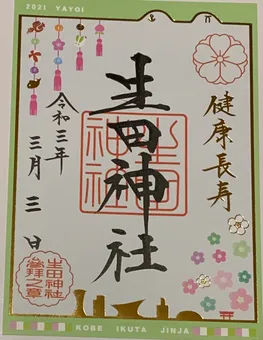 2021 YAYOI
健康長寿
生田神社
生田神社
令和三年
三月三日
生田神社
参拝之章
KOBE IKUTA JINJA